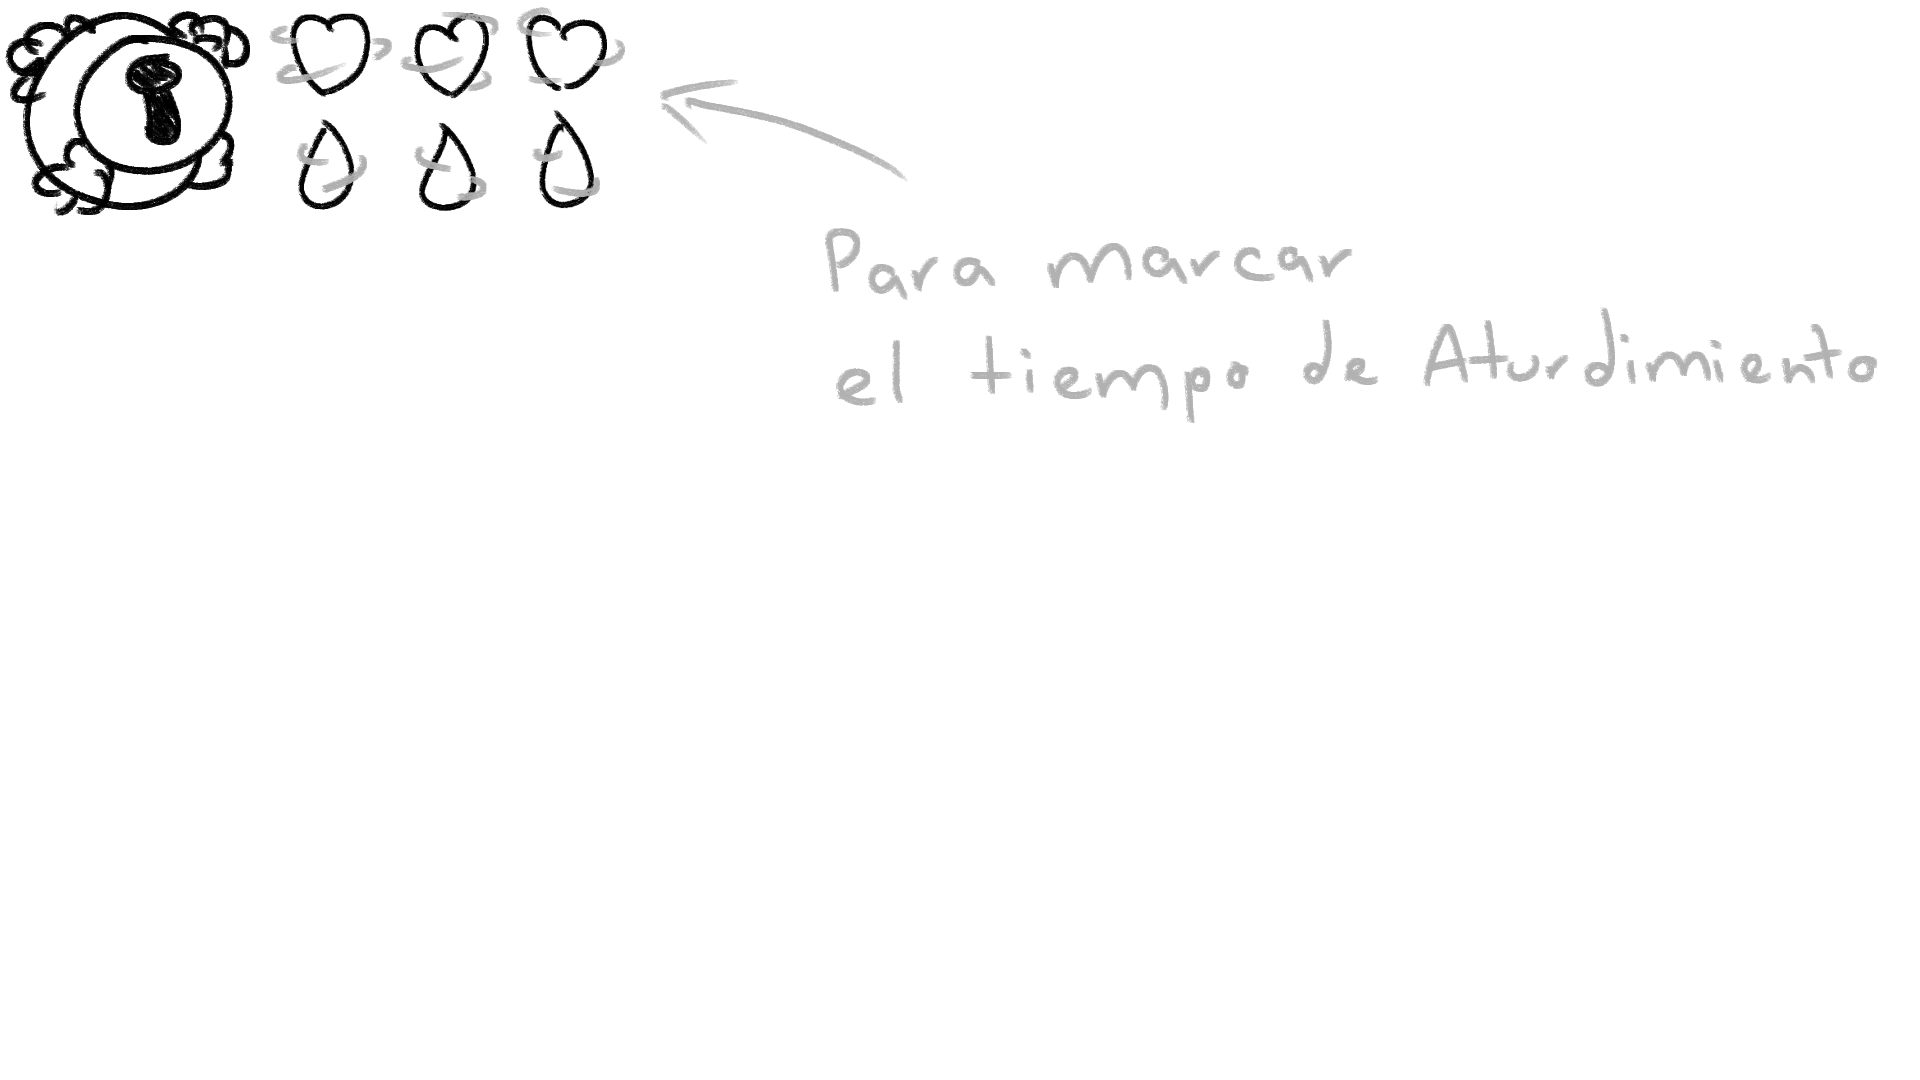 Para marcar
el tiempo de Aturdimiento